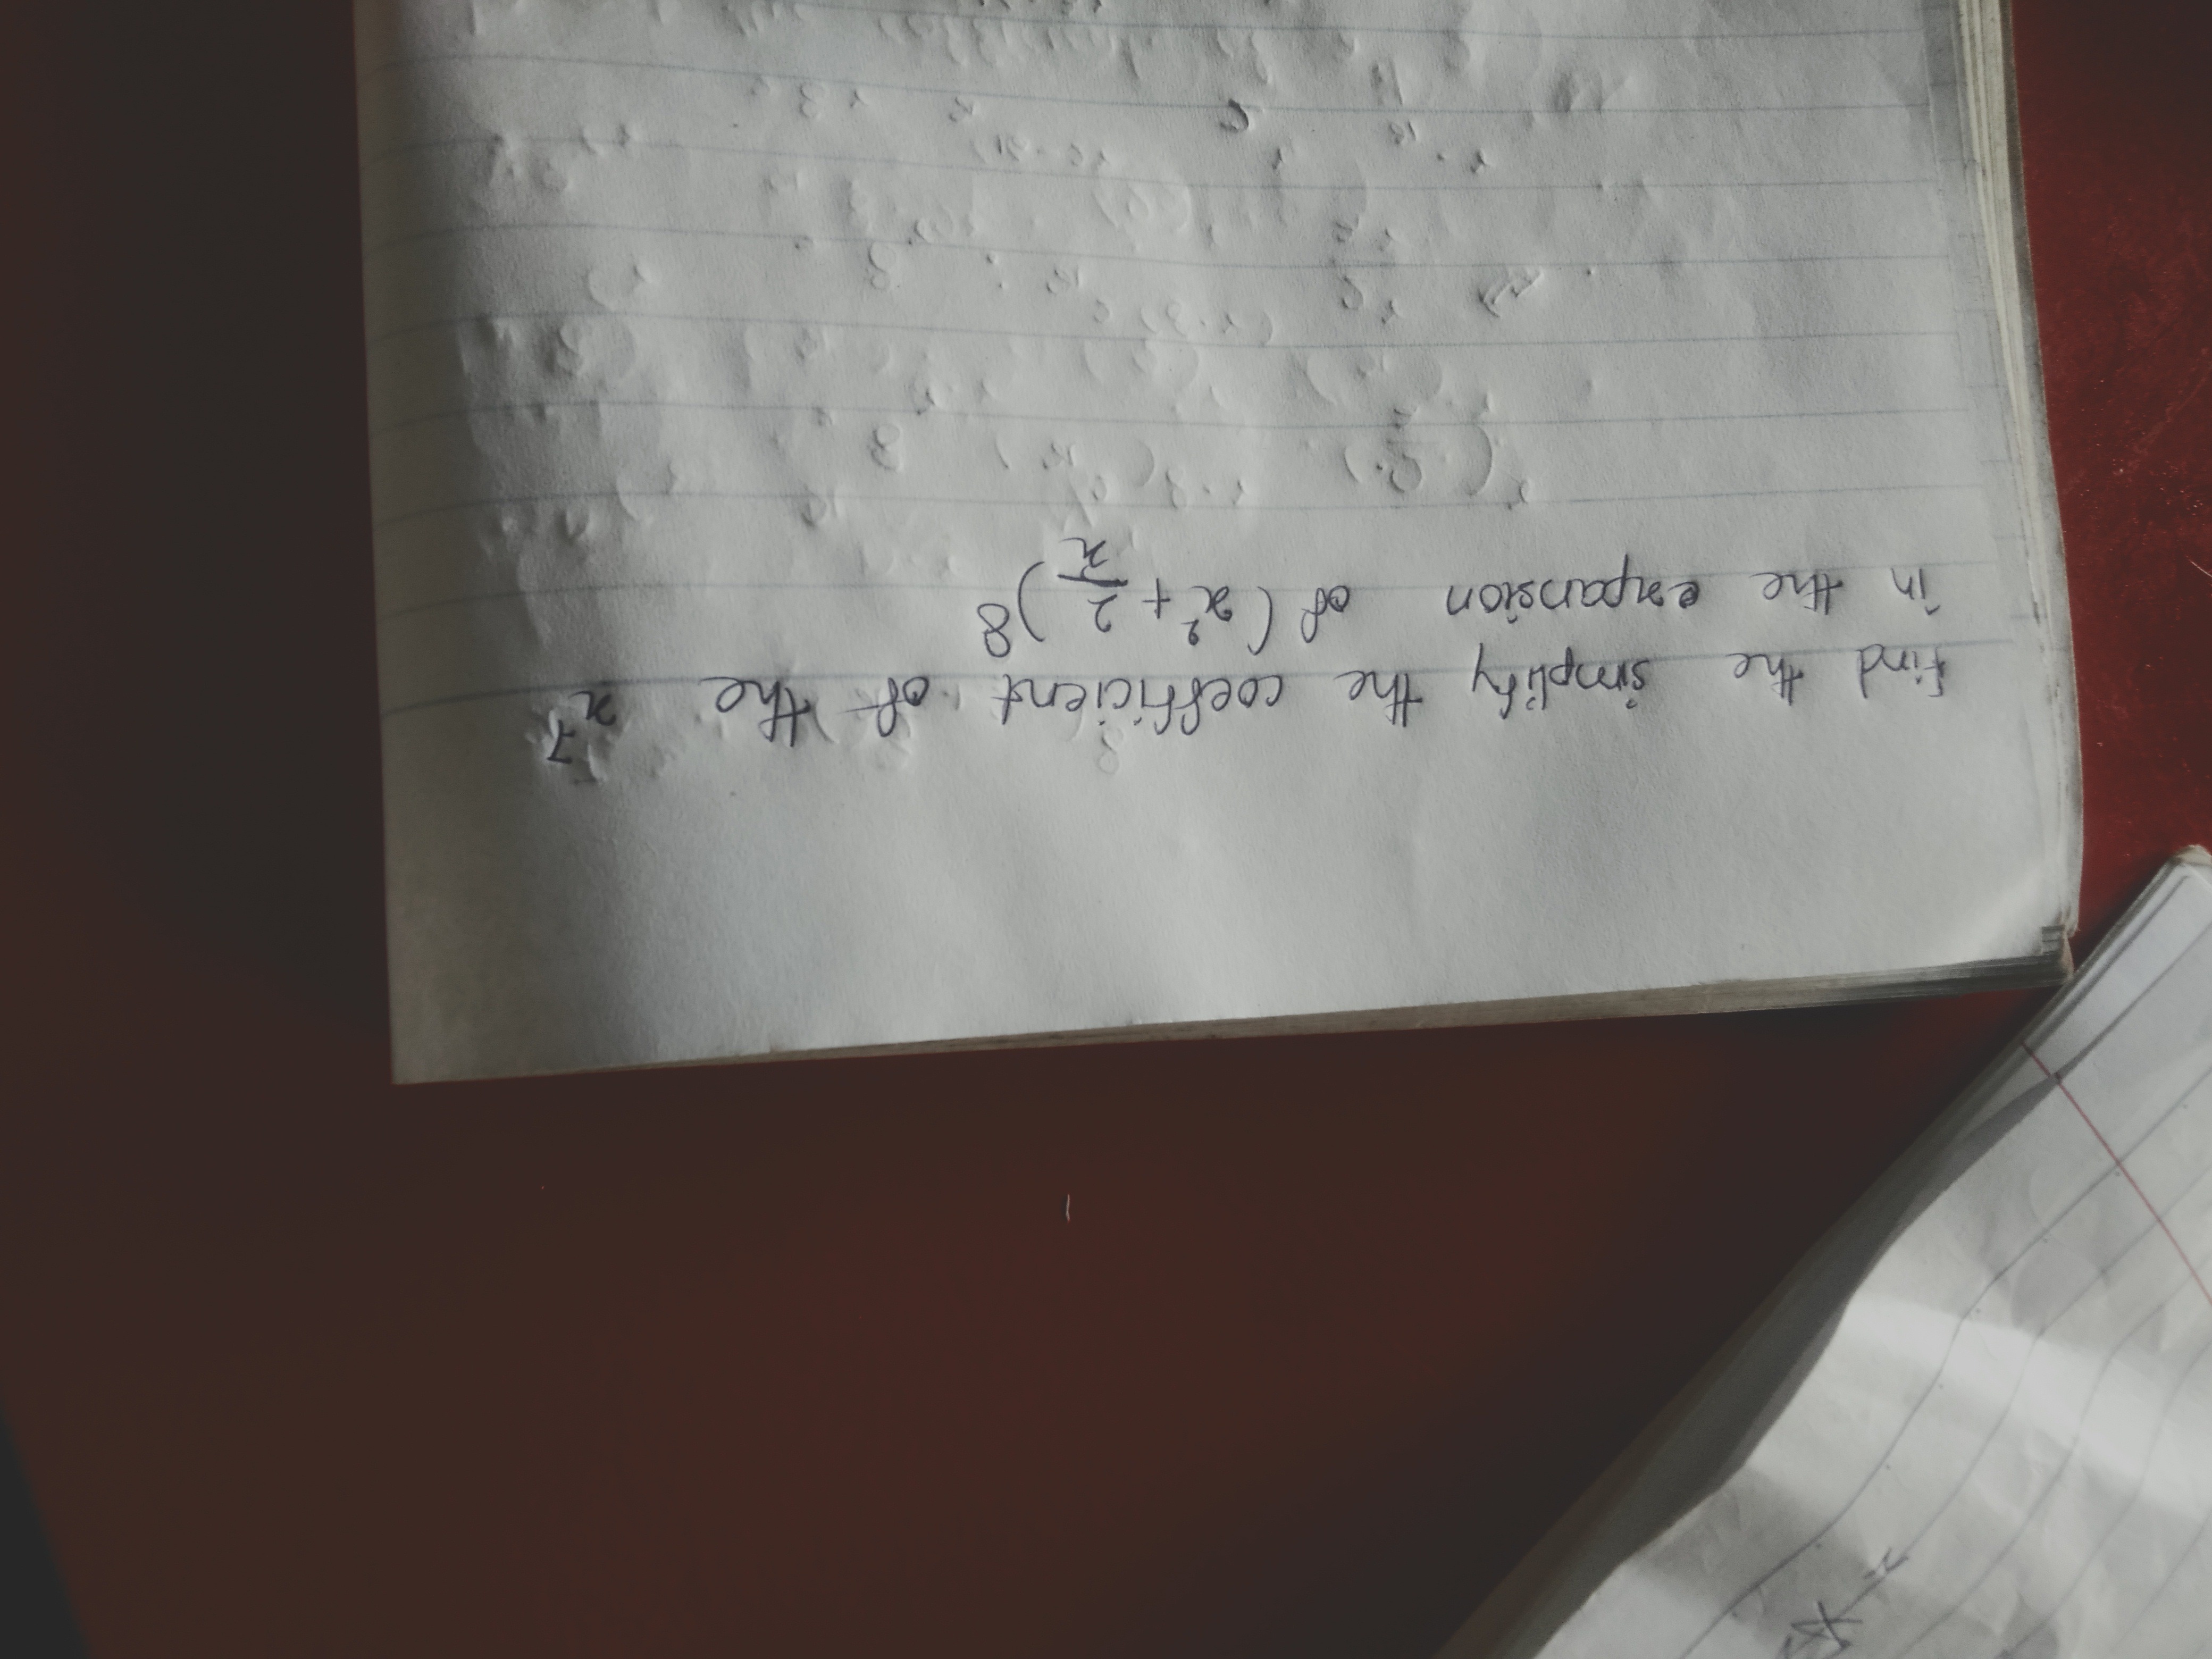 find the simplify the coefficient of the x⁷
in the expansion of (x² + 2/x)8